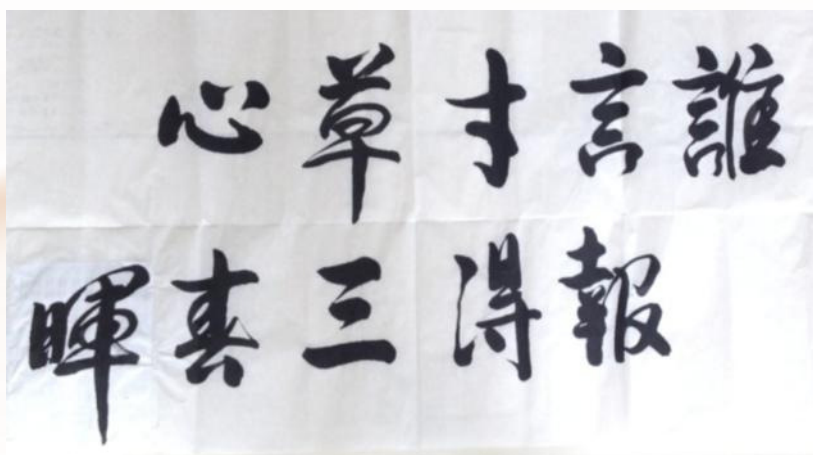 誰言寸草心
報得三春暉